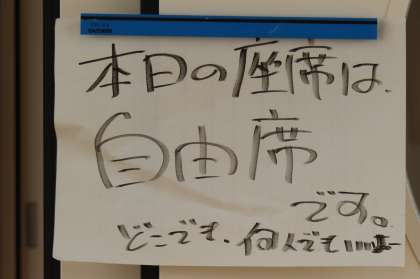 本日の座席は、
自由席
です。
どこでも、何人でもいいよー